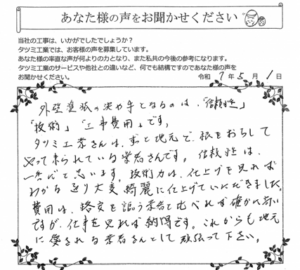 あなた様の声をお聞かせください
当社の工事は、いかがでしたでしょうか?
タツミ工業では、お客様の声を募集しています。
あなた様の率直な声が何よりの力となり、また私共の今後の参考になります。
タツミ工業のサービスや他社との違いなど、何でも結構ですのであなた様の声を
お聞かせください。
令和7年5月1日
外壁塗装の決め手となるのは、「信頼性」
「技術」「工事費用」です。
タツミ工業さんは、まず地元で根をおろして
やって来られている業者さんです。信頼性は
一番だと思います。技術力は、仕上げを見れば
わかる通り大変綺麗に仕上げていただきました。
費用は、格安を謳う業者と比べれば確かに高い
ですが、仕事を見れば納得です。これからも地元
に愛される業者さんとして頑張って下さい。